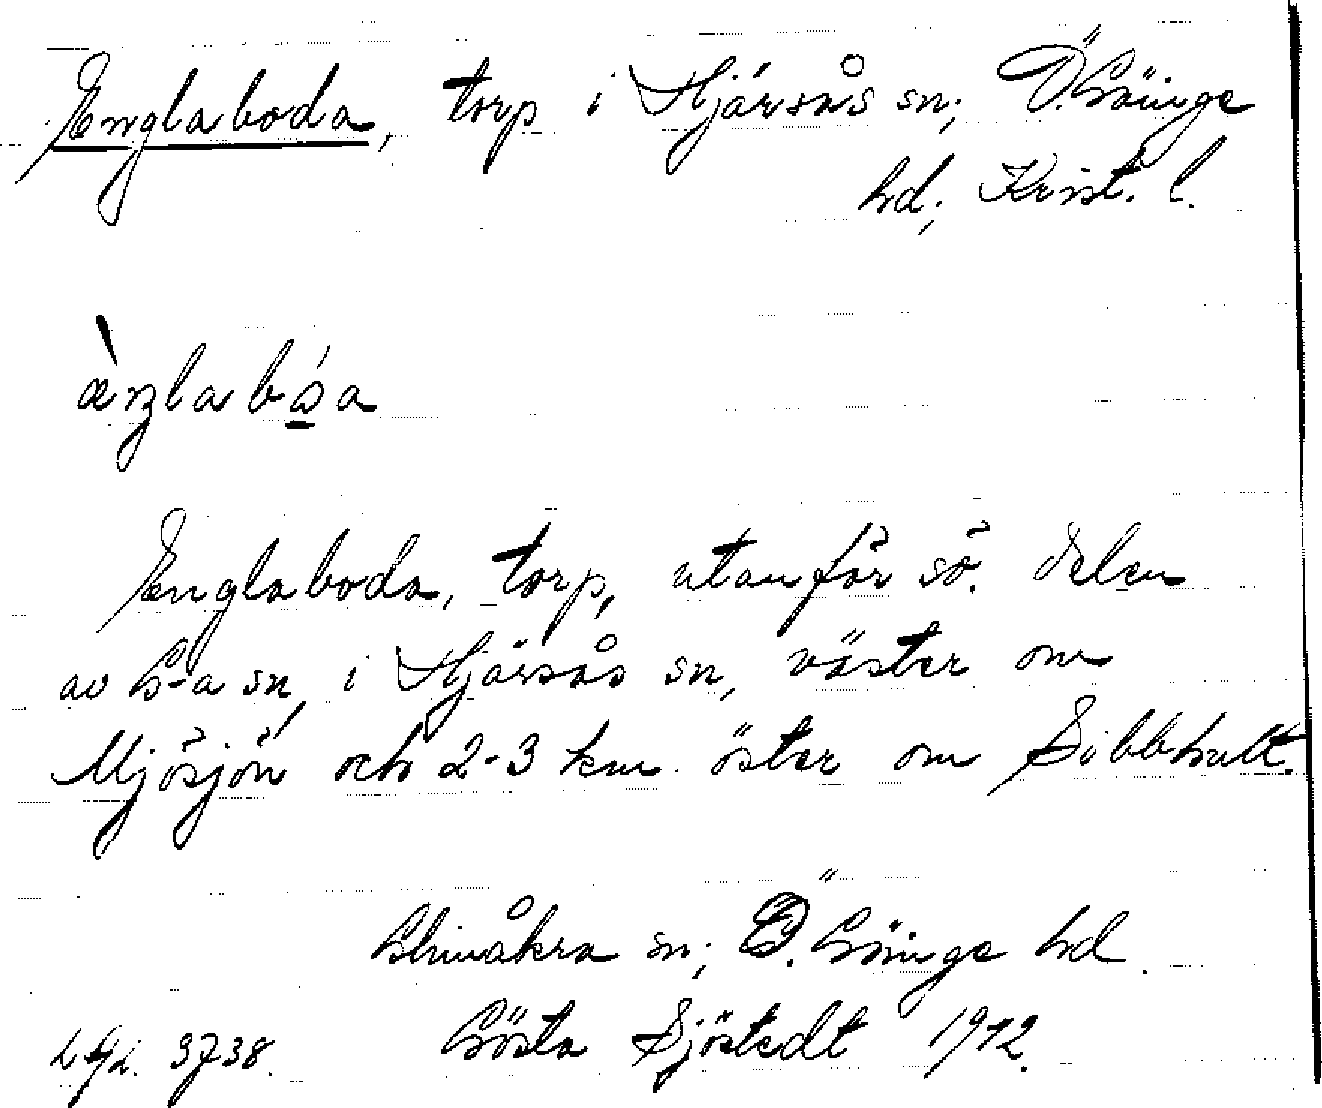 Englaboda, torp i Hjärsås sn; Ö. Göinge
hd; Krist. l.
Englaboda, torp, utanför sö. delen
av G-a sn, i Hjärsås sn, väster om
Mjösjön och 2-3 km. öster om Sibbhult.
Glimåkra sn; Ö. Göinge hd.
Gösta Sjöstedt 1972.
3738.